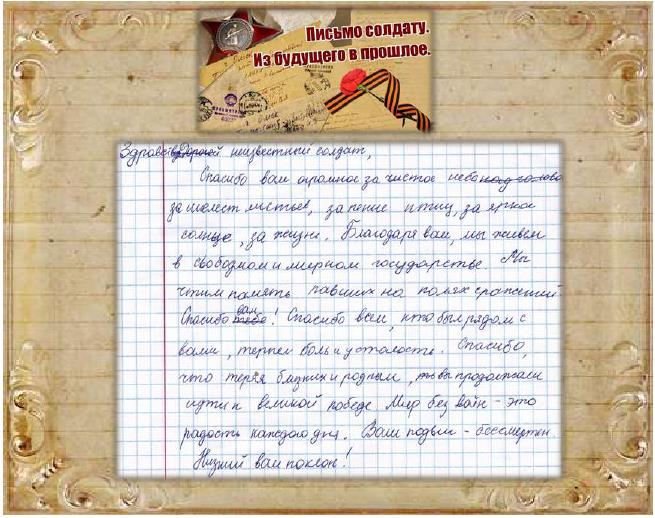 Письмо солдату.
Из будущего в прошлое.
Здравству Дорогой неизвестный солдат,
Спасибо вам огромное за чистое небо над голово
за шелест листьев, за пение птиц, за яркое
солнце, за жизнь. Благодаря вам, мы живём
в свободном и мирном государстве. Мы
чтим память павших на полях сражений.
Спасибо тебе вам! Спасибо всем, кто был рядом с
вами, терпел боль и усталость. Спасибо,
что теряя близких и родным, вы продолжали
идти к великой победе. Мир без войн - это
радость каждого дня. Ваш подвиг - бессмертен.
Низкий вам поклон!